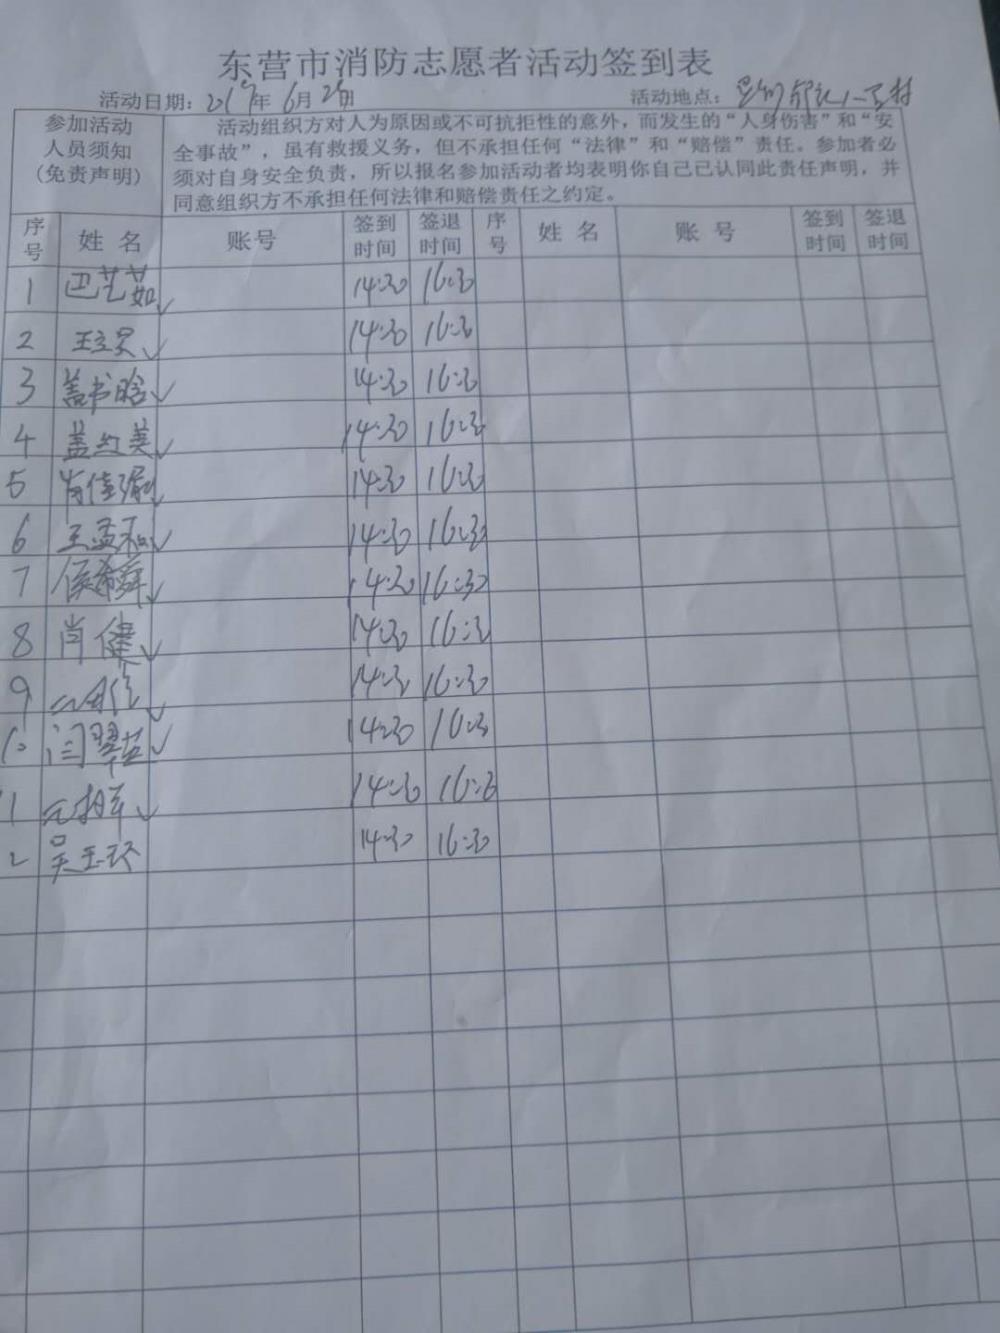 东营市消防志愿者活动签到表
活动日期：2019年6月2日 活动地点：
参加活动人员须知(免责声明)
活动组织方对人为原因或不可抗拒性的意外，而发生的“人身伤害”和“安
全事故”，虽有救援义务，但不承担任何“法律”和“赔偿”责任。参加者必
须对自身安全负责，所以报名参加活动者均表明你自己已认同此责任声明，并
同意组织方不承担任何法律和赔偿责任之约定。
序号 姓名 账号 签到时间 签退时间 序号 姓名 账号 签到时间 签退时间
1 巴艺茹✓ 14:30 16:30
2 王立 ✓ 14:30 16:30
3 盖书晗✓ 14:30 16:30
4 盖红美✓ 14:30 16:30
5 肖佳 ✓ 14:30 16:30
6 王孟和✓ 14:30 16:30
7 侯希舜✓ 14:30 16:30
8 肖健✓ 14:30 16:30
9 ✓ 14:30 16:30
10 闫翠英✓ 14:30 16:30
11 ✓ 14:30 16:30
2 吴玉环 14:30 16:30